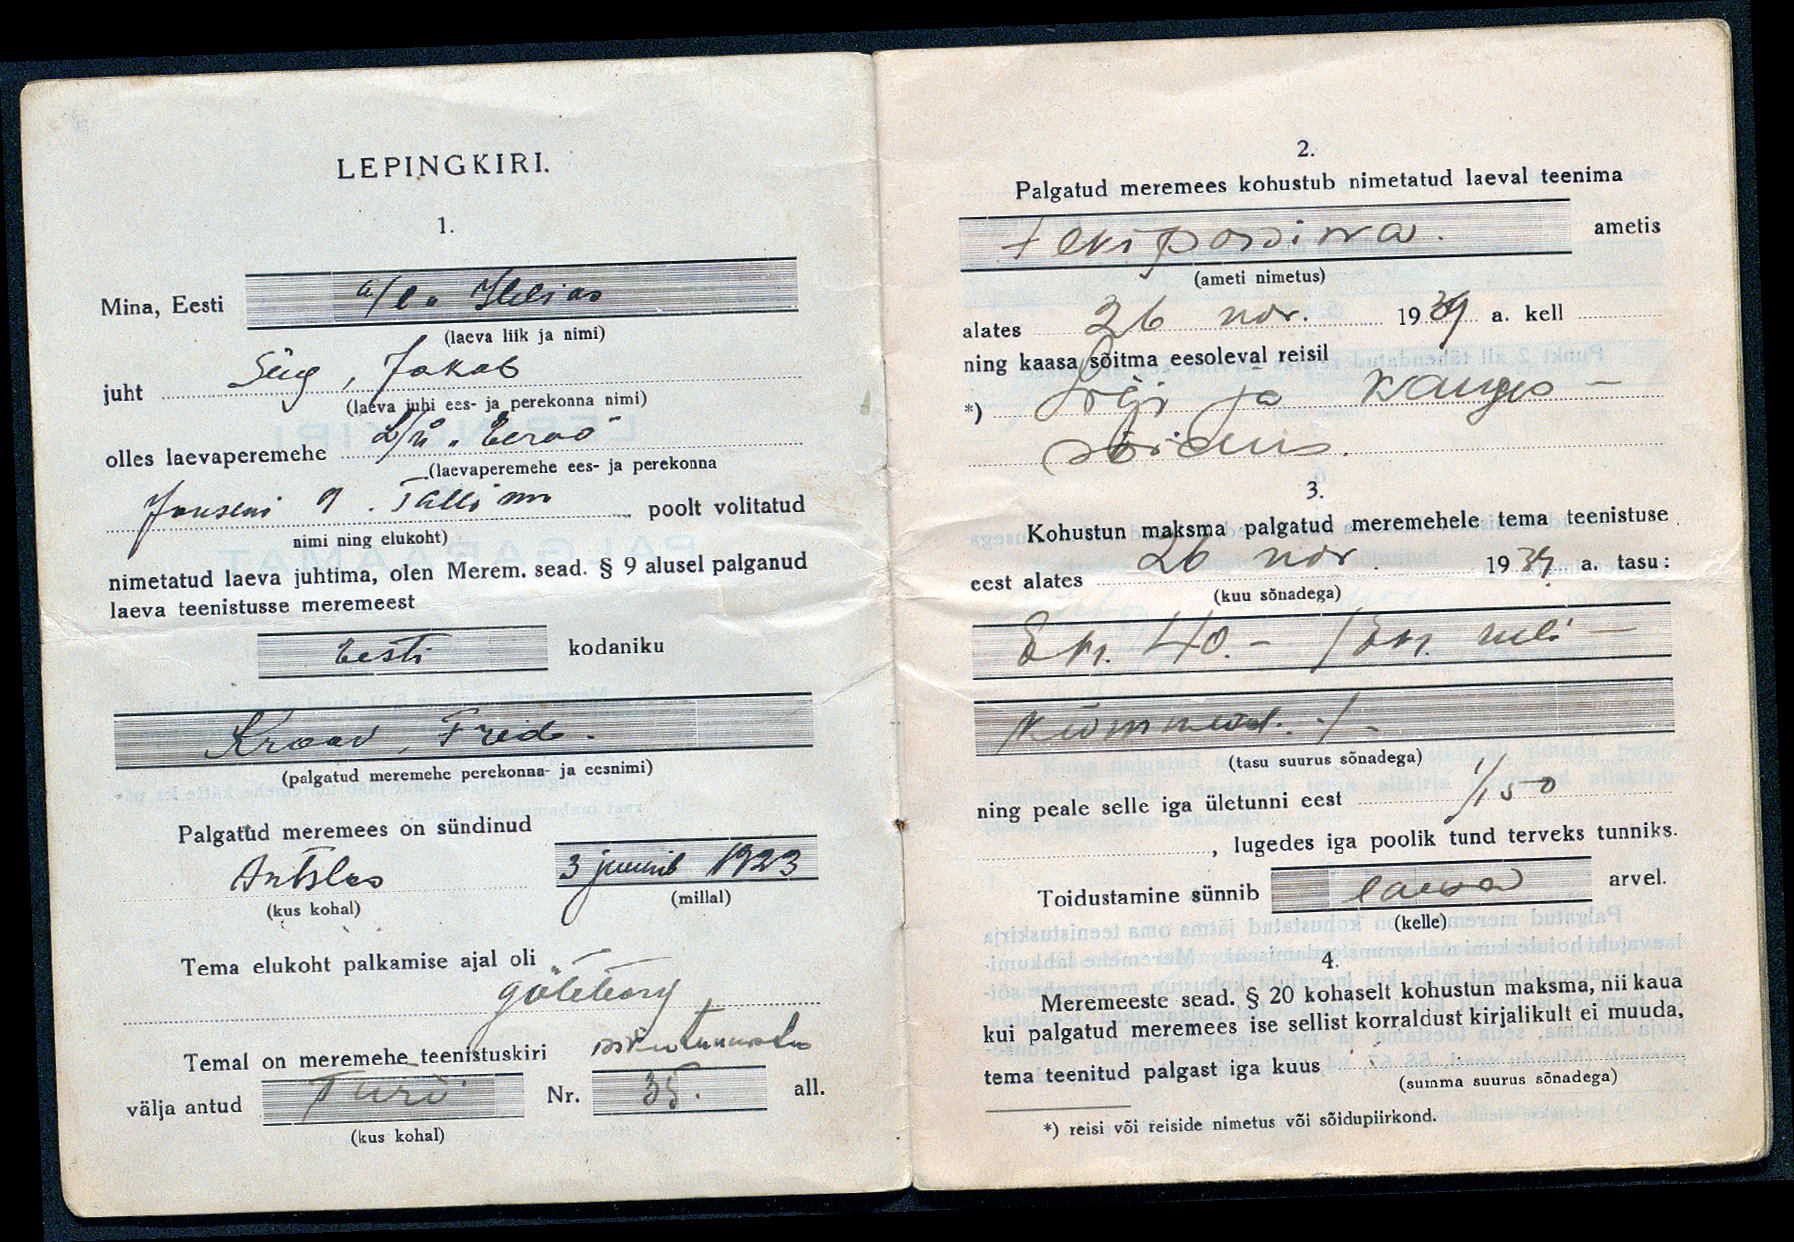 LEPINGKIRI.
1.
Mina, Eesti a/l. Helias
(laeva liik ja nimi)
juht Süg, Jakob
(laeva juhi ees- ja perekonna nimi)
olles laevaperemehe L/ü. "Eeroo"
(laevaperemehe ees- ja perekonna
Janseni 9. Tallinn poolt volitatud
nimi ning elukoht)
nimetatud laeva juhtima, olen Merem. sead. § 9 alusel palganud
laeva teenistusse meremeest
Eesti kodaniku
Kraav, Friido.
(palgatud meremehe perekonna- ja eesnimi)
Palgatud meremees on sündinud
Antslas 3 juunil 1923
(kus kohal) (millal)
Tema elukoht palkamise ajal oli
Göteborg,
Temal on meremehe teenistuskiri isikutunnistus
välja antud Türi Nr. 35. all.
(kus kohal)
2.
Palgatud meremees kohustub nimetatud laeval teenima
tekipoisina. ametis
(ameti nimetus)
alates 26 nov. 1939 a. kell
ning kaasa sõitma eesoleval reisil
*) Lähi ja Kauge-
sõidus.
3.
Kohustun maksma palgatud meremehele tema teenistuse
eest alates 26 nov. 1939 a. tasu:
(kuu sõnadega)
Ekr. 40.- /Ekr. neli-
kümmend./-
(tasu suurus sõnadega)
ning peale selle iga ületunni eest
, lugedes iga poolik tund terveks tunniks.
Toidustamine sünnib laeva arvel.
(kelle)
4.
Meremeeste sead. § 20 kohaselt kohustun maksma, nii kaua
kui palgatud meremees ise sellist korraldust kirjalikult ei muuda,
tema teenitud palgast iga kuus
(summa suurus sõnadega)
*) reisi või reiside nimetus või sõidupiirkond.